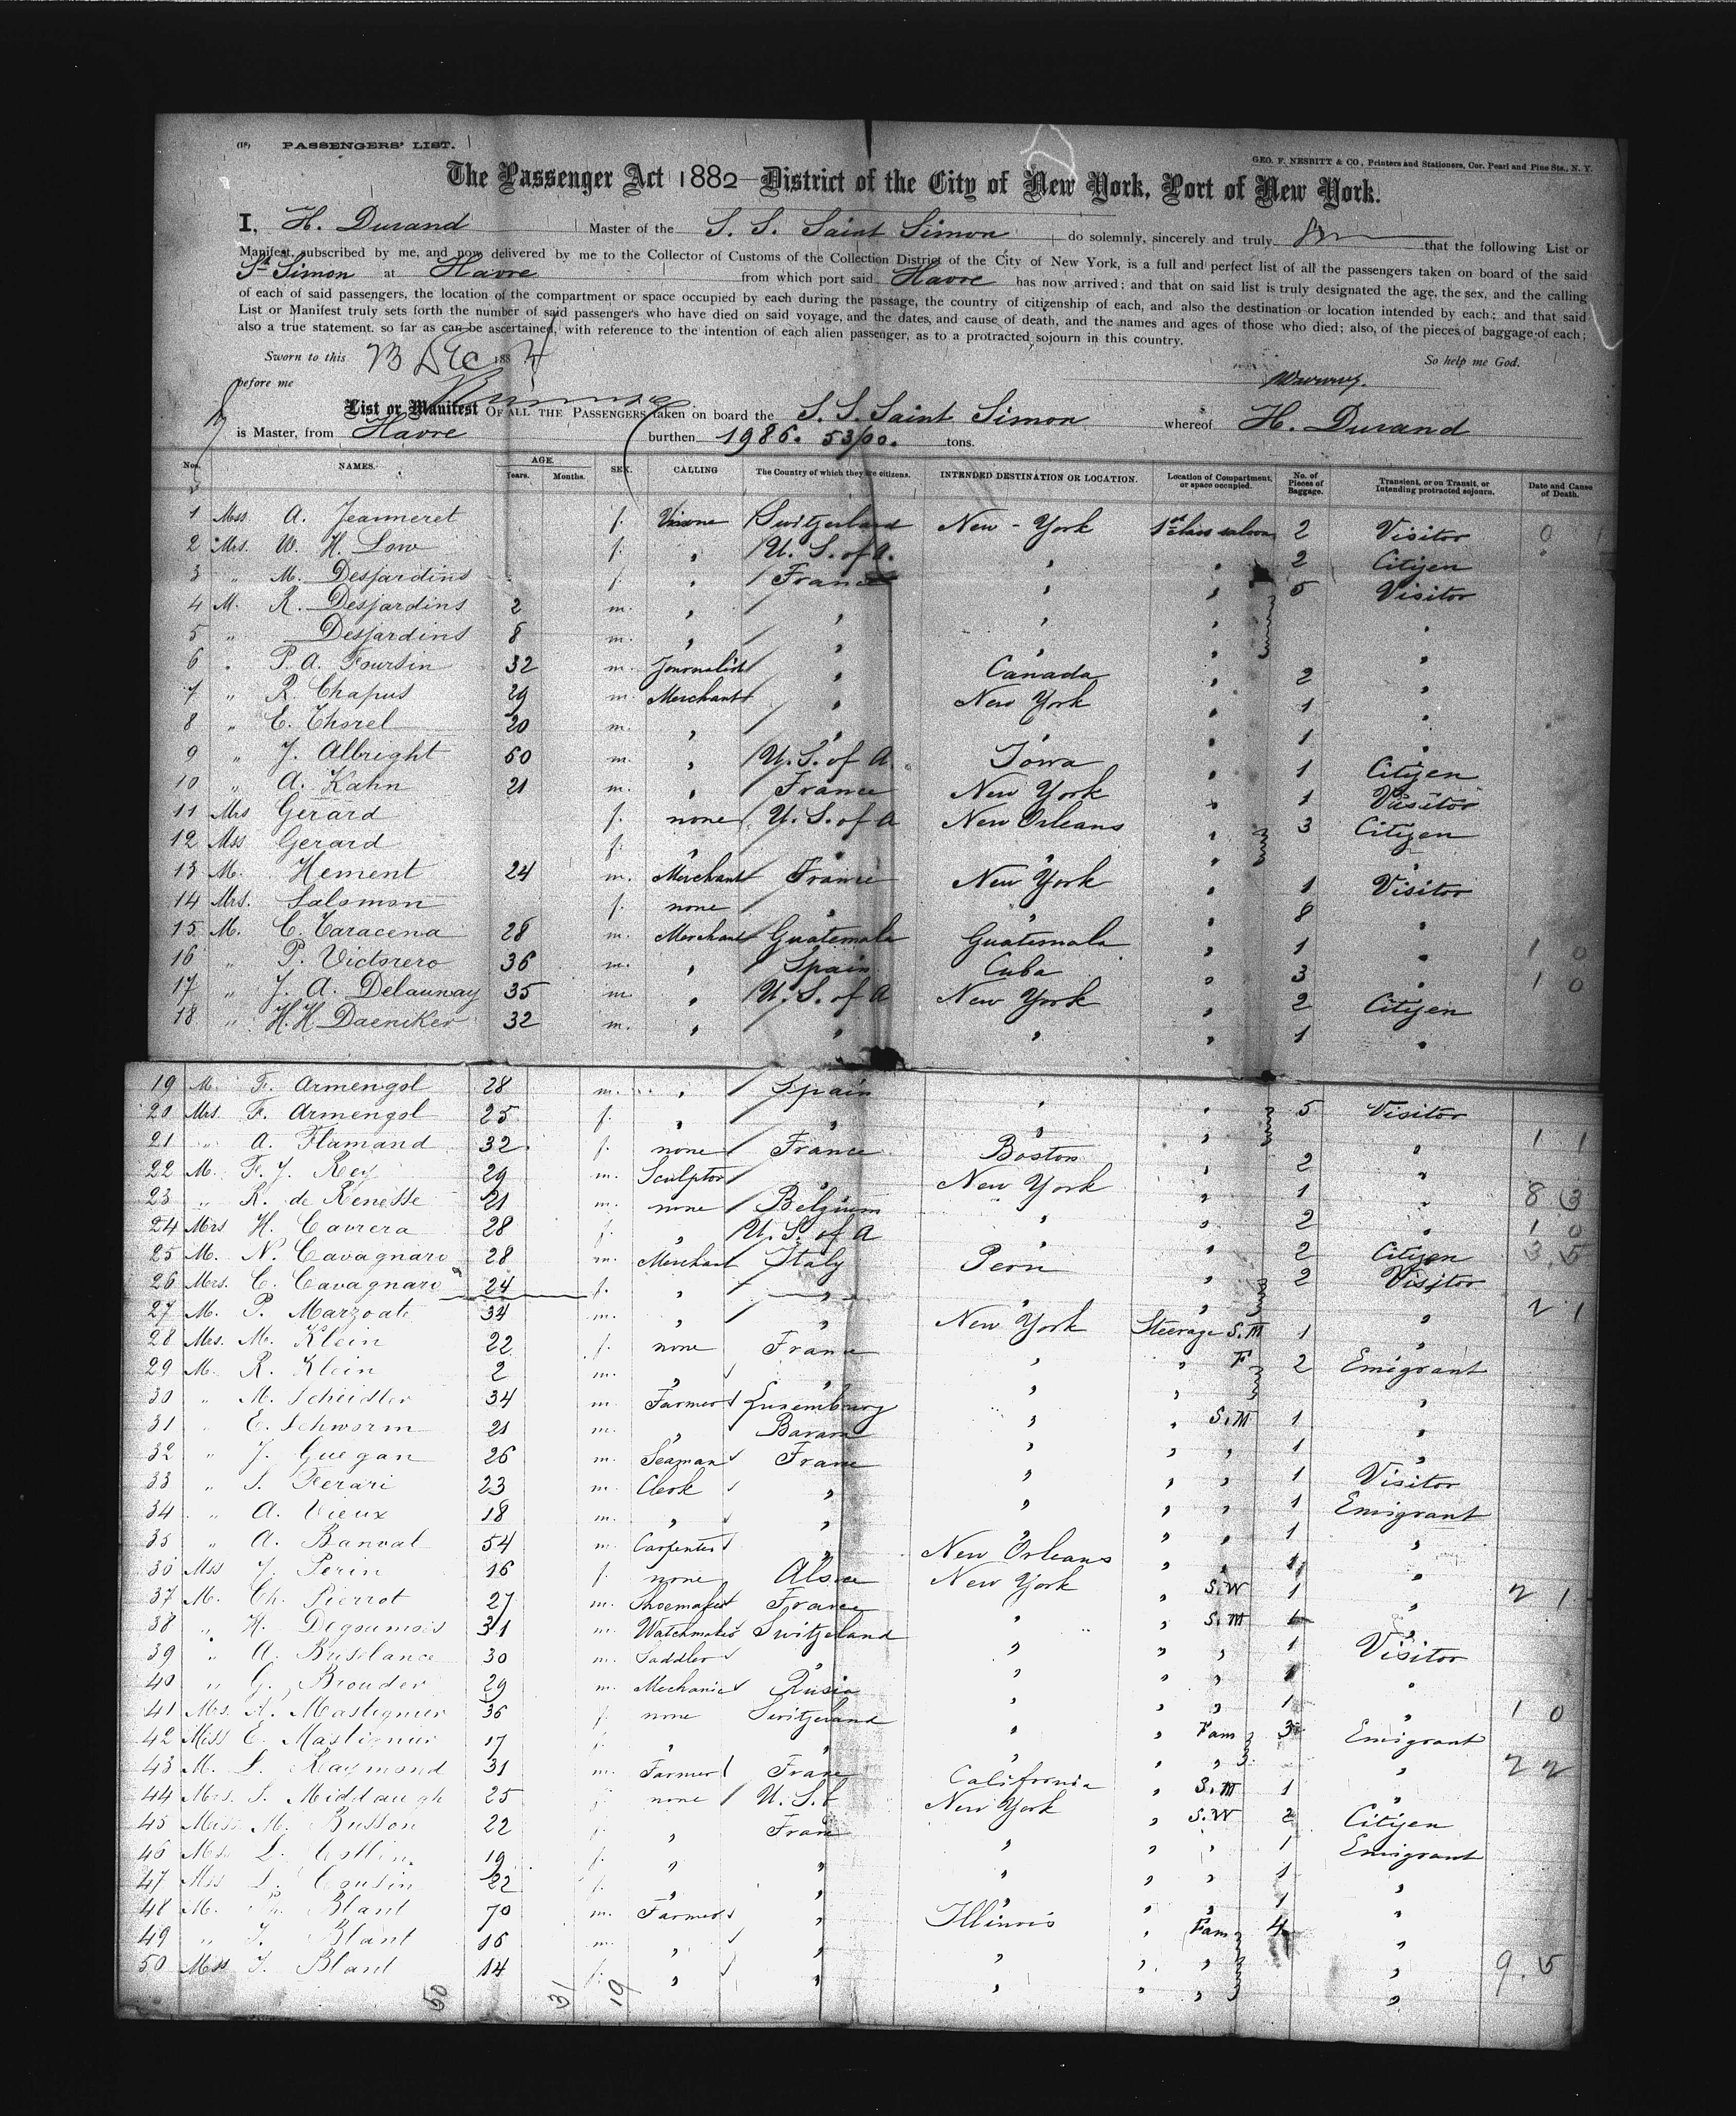 (18) PASSENGERS' LIST.
GEO. F. NESBITT & CO., Printers and Stationers, Cor. Pearl and Pine Sts., N. Y.
The Passenger Act 1882 District of the City of New York, Port of New York.
I, H. Durand Master of the S. S. Saint Simon do solemnly, sincerely and truly that the following List or
Manifest, subscribed by me, and now delivered by me to the Collector of Customs of the Collection District of the City of New York, is a full and perfect list of all the passengers taken on board of the said
St Simon at Havre from which port said Havre has now arrived; and that on said list is truly designated the age, the sex, and the calling
of each of said passengers, the location of the compartment or space occupied by each during the passage, the country of citizenship of each, and also the destination or location intended by each; and that said
List or Manifest truly sets forth the number of said passengers who have died on said voyage, and the dates, and cause of death, and the names and ages of those who died; also, of the pieces of baggage of each;
also a true statement, so far as can be ascertained, with reference to the intention of each alien passenger, as to a protracted sojourn in this country.
Sworn to this 23 Dec 188 So help me God.
before me
List or Manifest OF ALL THE PASSENGERS taken on board the S. S. Saint Simon whereof H. Durand
is Master, from Havre burthen 1986. 53/00. tons.
Nos. NAMES. AGE. Years. Months. SEX. CALLING The Country of which they are citizens. INTENDED DESTINATION OR LOCATION. Location of Compartment, or space occupied. No. of Pieces of Baggage. Transient, or on Transit, or Intending protracted sojourn. Date and Cause of Death.
1 Mss A. Jeanneret f. Switzerland New-York 1st class saloon 2 Visitor 0 1
2 Mrs. W. H. Low f. " U. S. of A. " " 2 Citizen
3 " M. Desjardins f. " France " " 5 Visitor
4 M. R. Desjardins 2 m. " " " " "
5 " Desjardins 8 m. " " " " "
6 " P. A. Foursin 32 m. Journalist " Canada " 2 "
7 " R. Chapus 29 m. Merchant " New York " 1 "
8 " E. Thorel 20 m. " " " " 1 "
9 " J. Albright 60 m. " U. S. of A. Iowa " 1 Citizen
10 " A. Kahn 21 m. " France New York " 1 Visitor
11 Mrs Gerard f. none U. S. of A New Orleans " 3 Citizen
12 Mss Gerard f. " " " " "
13 M. Hement 24 m. Merchant France New York " 1 Visitor
14 Mrs. Salomon f. none " " " 8 "
15 M. C. Taracena 28 m. Merchant Guatemala Guatemala " 1 " 1 0
16 " P. Victorero 36 m. " Spain Cuba " 3 " 1 0
17 " J. A. Delaunay 35 m " U. S. of A New York " 2 Citizen
18 " H. H. Daeniker 32 m. " " " " 1 "
19 M. F. Armengol 28 m. " Spain " " 5 Visitor
20 Mrs F. Armengol 25 f. " " " " "
21 " A. Flamand 32 f. none France Boston " 2 " 1 1
22 M. F. J. Rey 29 m. Sculptor " New York " 1 "
23 " R. de Renesse 21 m. none Belgium " " 2 " 8 3
24 Mrs H. Carrera 28 f. " U. S. of A " " 2 Citizen 1 0
25 M. N. Cavagnaro 28 m. Merchant Italy Peru " 2 Visitor 3 5
26 Mrs. C. Cavagnaro 24 f. " " " " "
27 M. P. Marzoati 34 m. " " New York Steerage S. M 1 " 2 1
28 Mrs. M. Klein 22 f. none France " " F 2 Emigrant
29 M. R. Klein 2 m. " " " " "
30 " M. Scheidler 34 m. Farmer Luxemburg " " S. M 1 "
31 " E. Schworm 21 m. " Bavaria " " " 1 "
32 " J. Guegan 26 m. Seaman France " " " 1 Visitor
33 " S. Ferari 23 m. Clerk " " " " 1 Emigrant
34 " A. Vieux 18 m. " " " " " 1 "
35 " A. Banval 54 m. Carpenter " New Orleans " " 1 "
36 Mss J. Perin 16 f. none Alsace New York " S. W 1 " 2 1
37 M. Ch. Pierrot 27 m. Shoemaker France " " S. M 1 "
38 " H. Degoumois 31 m. Watchmaker Switzeland " " " 1 Visitor
39 " A. Brislance 30 m. Saddler " " " " 1 "
40 " G. Brouder 29 m. Mechanic Rusia " " " 1 "
41 Mrs. Mastignier 36 f. none Switzerland " " Fam 3 Emigrant 1 0
42 Miss E. Mastignier 17 f. " " " " " "
43 M. L. Raymond 31 m. Farmer France California " S. M 1 " 2 2
44 Mrs. S. Middaugh 25 f. none U. S. New York " S. W 2 Citizen
45 Miss M. Busson 22 f. " France " " " 1 Emigrant
46 Mss L. Collin 19 f. " " " " " 1 "
47 Mss L. Cousin 22 f. " " " " " 1 "
48 M. Blant 70 m. Farmer " Illinois " Fam 4 "
49 " J. Blant 16 m. " " " " " "
50 Mss J. Blant 14 f. " " " " " " 9. 5
50 31 19